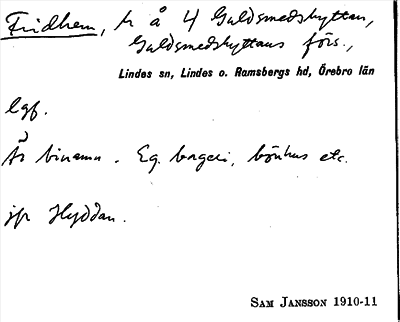 Fridhem, h å 4 Guldsmedshyttan,
Guldsmedshyttans förs.,
Lindes sn, Lindes o. Ramsbergs hd, Örebro län
lgf.
Är binamn. Eg. bageri, bönhus etc.
jfr Hyddan.
SAM JANSSON 1910-11